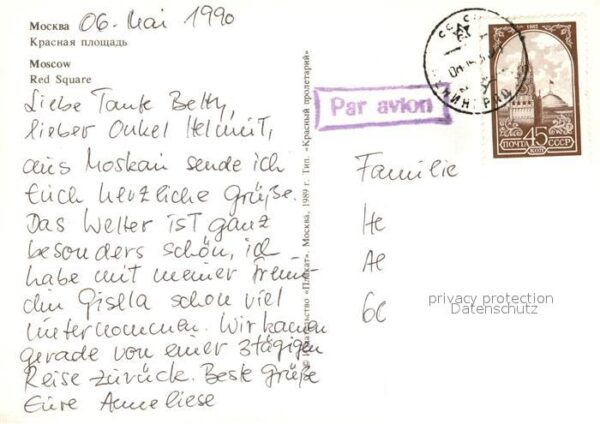 Москва 06. Mai 1990
Красная площадь
Moscow
Red Square
Liebe Tante Betty,
lieber Onkel Helmut,
aus Moskau sende ich
Euch herzliche Grüße.
Das Wetter ist ganz
besonders schön, ich
habe mit meiner Freun-
din Gisela schon viel
unternommen. Wir kamen
gerade von einer 3tägigen
Reise zurück. Beste Grüße
Eure Anneliese
«Плакат». Москва, 1989 г. Тип. «Красный пролетарий»
Par avion
ПОЧТА 45 СССР
Familie
He
Ae
privacy protection
Datenschutz